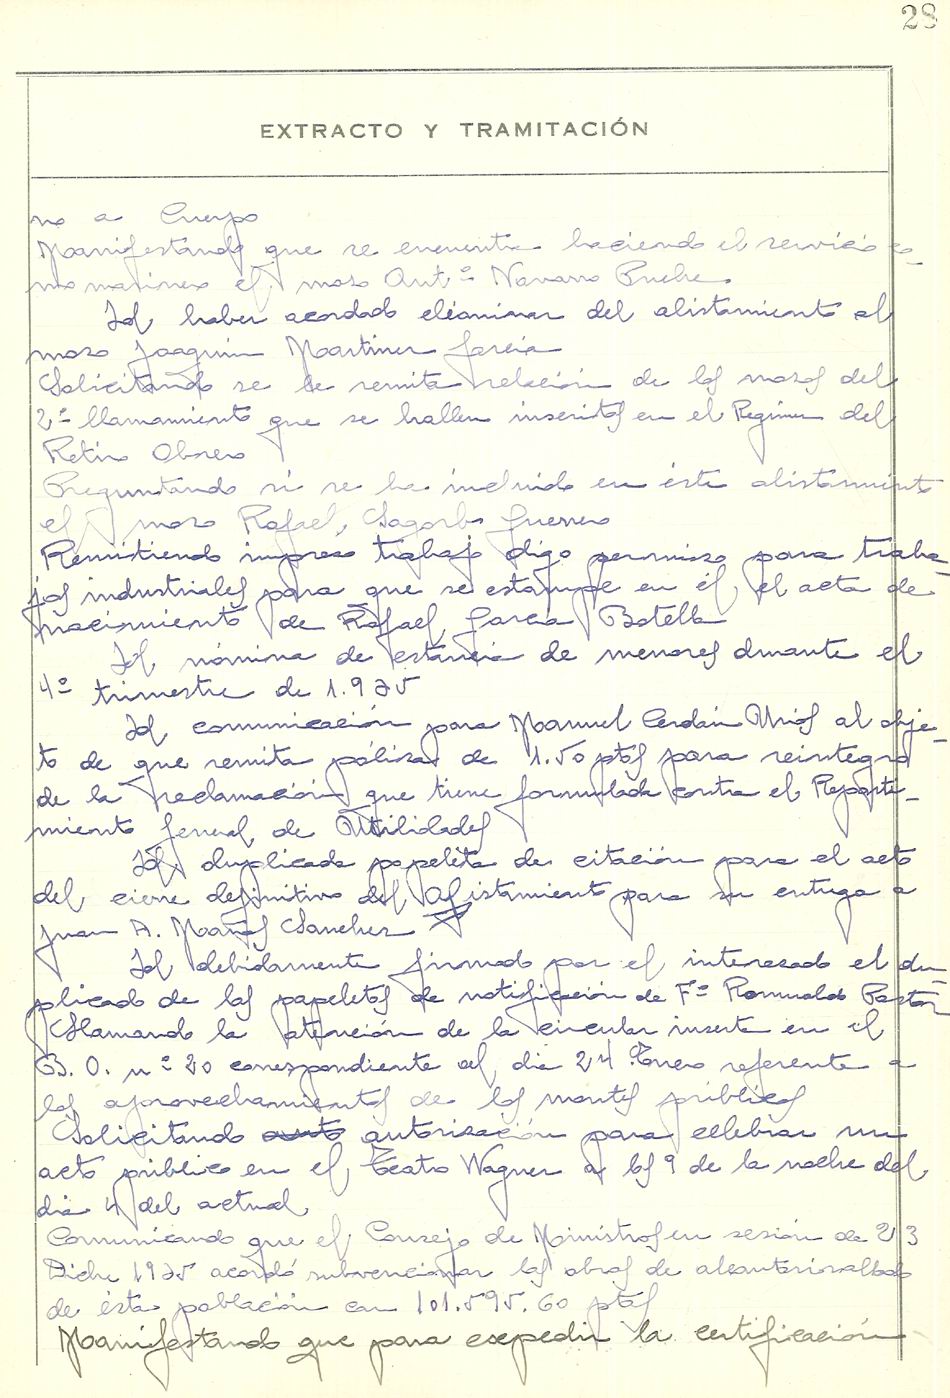 28
EXTRACTO Y TRAMITACIÓN
no a Cuerpo
Manifestando que se encuentra haciendo el servicio co-
mo marinero el mozo Antº Navarro Puche
Id haber acordado eleiminar del alistamiento al
mozo Joaquin Martinez Garcia
Solicitando se le remita relación de los mozos del
2º llamamiento que se hallen inscritos en el Regimen del
Retiro Obrero
Preguntando si se ha incluido en éste alistamiento
el mozo Rafael Sagorbo Guerrero
Remitiendo impreso trabajo digo permiso para traba-
jos industriales para que se estampe en él el acta de
nacimiento de Rafael Garcia Botella
Id nómina de estancia de menores durante el
4º trimestre de 1.935
Id comunicación para Manuel Cerdán Urios al obje-
to de que remita póliza de 1.50 ptas para reintegro
de la reclamación que tiene formulada contra el Reparti-
miento General de Utilidades
Id duplicada papeleta de citación para el acto
del cierre definitivo del Alistamiento para su entrega a
Juan A. Mañas Sanchez
Id debidamente firmado por el interesado el du-
plicado de las papeletas de notificación de Fº Romualdo Pastor
Llamando la atención de la circular inserta en el
B. O. nº 20 correspondiente al dia 24 Enero referente a
los aprovechamientos de los montes públicos
Solicitando autorización para celebrar un
acto público en el Teatro Wagner a las 9 de la noche del
dia 4 del actual
Comunicando que el Consejo de Ministros en sesión de 23
Dicbre 1935 acordó subvencionar las obras de alcantarillado
de ésta población con 101.595.60 ptas
Manifestando que para esepedir la certificación